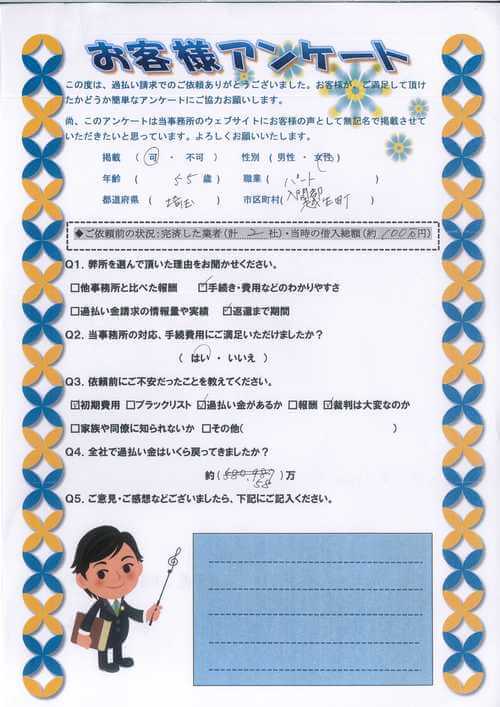 お客様アンケート
この度は、過払い請求でのご依頼ありがとうございました。お客様が、ご満足して頂け
たかどうか簡単なアンケートにご協力お願いします。
尚、このアンケートは当事務所のウェブサイトにお客様の声として無記名で掲載させて
いただきたいと思っています。よろしくお願いいたします。
掲載 ( 可 ・ 不可 ) 性別 ( 男性 ・ 女性 )
年齢 ( 55 歳 ) 職業 ( パート )
都道府県 ( 埼玉 ) 市区町村( 入間郡 越生町 )
◆ご依頼前の状況：完済した業者（計 2 社）・当時の借入総額（約 100万円）
Q1．弊所を選んで頂いた理由をお聞かせください。
□他事務所と比べた報酬 ☑手続き・費用などのわかりやすさ
□過払い金請求の情報量や実績 ☑返還まで期間
Q2．当事務所の対応、手続費用にご満足いただけましたか？
( はい ・ いいえ )
Q3．依頼前にご不安だったことを教えてください。
☑初期費用 □ブラックリスト ☑過払い金があるか □報酬 ☑裁判は大変なのか
□家族や同僚に知られないか □その他( )
Q4．全社で過払い金はいくら戻ってきましたか？
約( 580,987 )万
58
Q5．ご意見・ご感想などございましたら、下記にご記入ください。